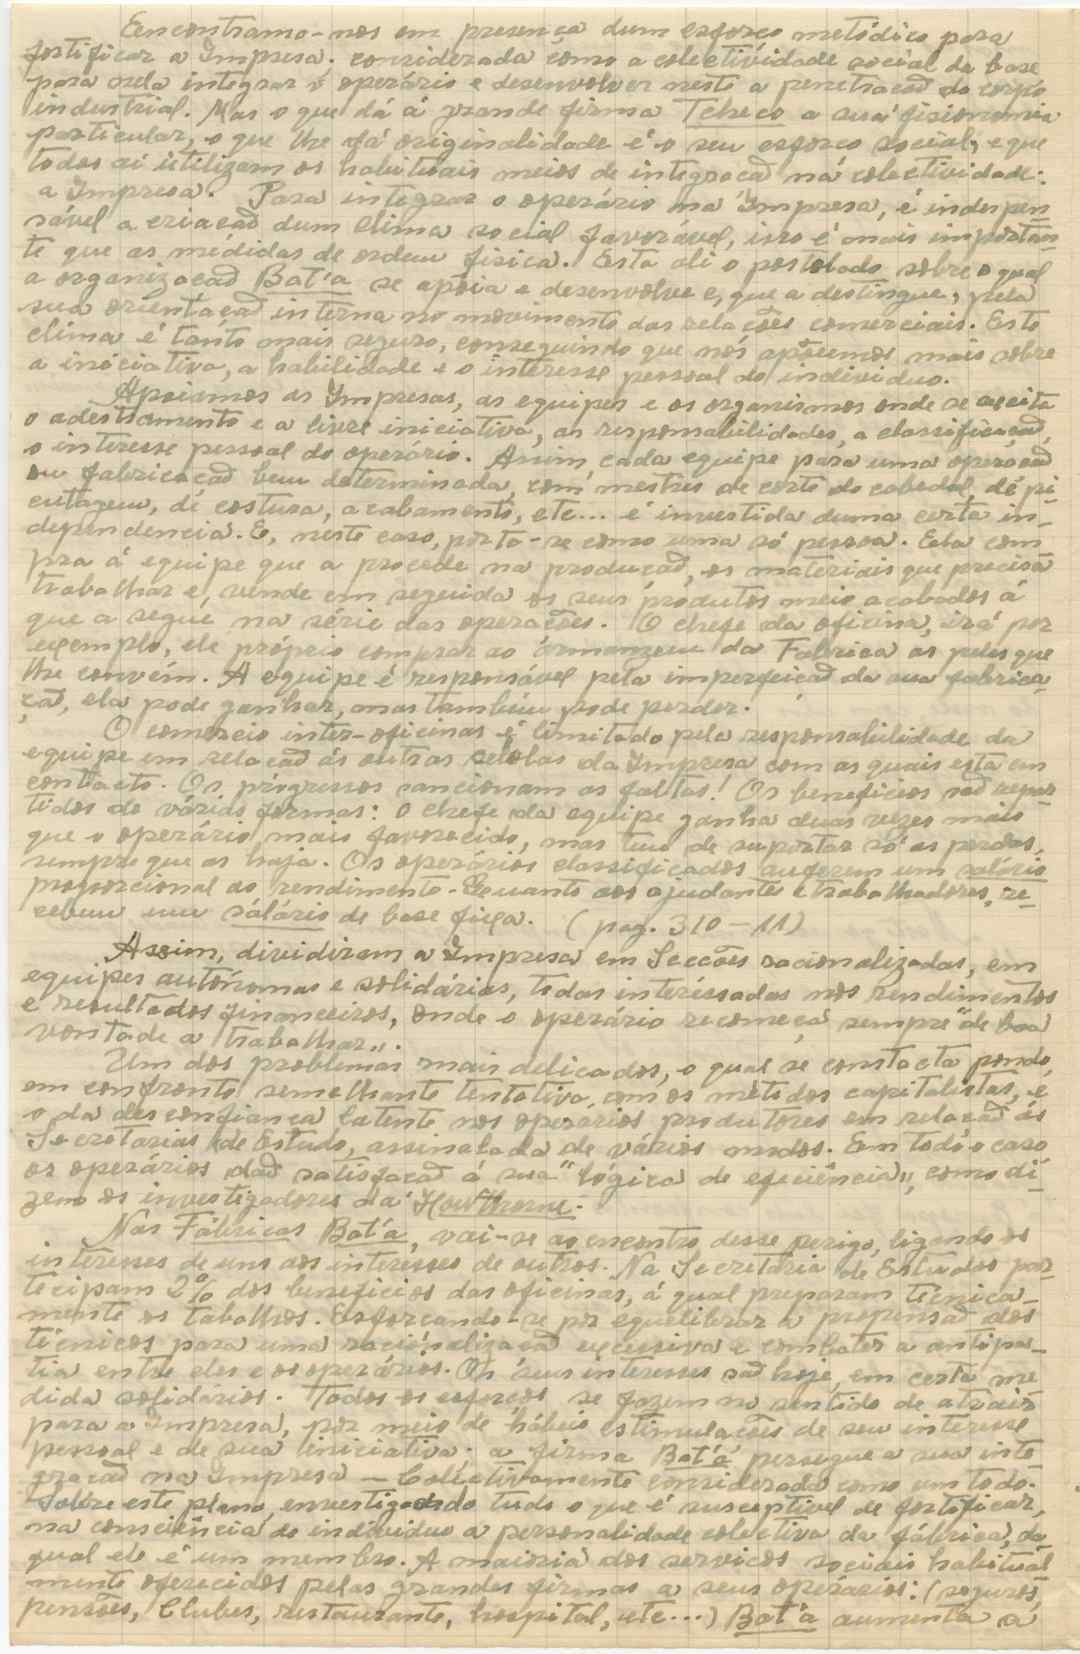 Eencontramo-nos em presença dum esforço metódico para
fortificar a Impresa. considerada como a colectividade social de base
para nela integrar o operário e desenvolver neste a penetração do corpo
industrial. Mas o que dá á grande firma Tcheco a sua fisionomia
particular, o que lhe fá originalidade é o seu esforço social, e que
todos ai utilizam os habituais meios de integração na colectividade:
a Impresa. Para integrar o operário na Impresa, é indespen
sável a criação dum clima social favorável, isso é mais importan
te que as médidas de ordem fisica. Esta ali o postolado sobre o qual
a organização Bat'a se apoia e desenvolve e, que a destingue, pela
sua orientação interna no movimento das relações comerciais. Este
clima é tanto mais seguro, conseguindo que nós apoiemos mais sobre
a iniciativa, a habilidade e o interesse pessoal do individuo.
Apoiamos as Impresas, as equipes e os organismos onde se aceita
o adestramento e a livre iniciativa, as responsabilidades, a classificação,
o interesse pessoal do operário. Assim, cada equipe para uma operação
ou fabricação bem determinada, com mestres de corte do cabedal, de pi-
cutagem, de costura, acabamento, etc... é investida duma certa in-
dependencia. E, neste caso, porta-se como uma só pessoa. Ela com
pra á equipe que a procede na produção, os materiais que precisa
trabalhar e, vende em seguida os seus produtos meio acabados á
que a segue na série das operações. O chefe da oficina, irá por
exemplo, ele próprio comprar ao ármanzem da Fabrica as peles que
lhe convém. A equipe é responsável pela imperfeição da sua fabrica-
ção, ela pode ganhar, mas também pode perder.
O comércio inter-oficinas é limitado pela responsabilidade da
equipe em relação ás outras celolas da Impresa com as quais esta em
contacto. Os prógressos sancionam as faltas! Os beneficios são repar
tidos de várias formas: o chefe da equipe ganha duas vezes mais
que o operário mais favorecido, mas tem de suportar só as perdas,
sempre que as haja. Os operários classificados auferem um salário
proporcional ao rendimento - Quanto aos ajudantes e trabalhadores, re-
cebem um sálário de base fixa. (pag. 310-11)
Assim, dividiram a Impresa em Secções racionalizadas, em
equipes autónomas e solidárias, todas interéssadas nos rendimentos
e resultados financeiros, onde o operário recomeça sempre "de boa
vontade a trabalhar".
Um dos problemas mais delicados, o qual se constacta pondo,
em confronto semelhante tentativa, com os métodos capitalistas, é
o da desconfiança latente nos operários produtores em relação ás
Secretarias de Estudo, assinalada de vários modos. Em todo o caso
os operários dão satisfação á sua "lógica de eficiência", como di-
zem os investigadores da Hawthorne.
Nas Fábricas Bat'a, vai-se ao encontro desse perigo, ligando os
interesses de uns aos interesses de outros. Na Secretaria de Estudos par-
tecipam 2% dos beneficios das oficinas, á qual preparam técnica-
mente os tabalhos. Esforçando-se por equelibrar a propensão dos
técnicos para uma racionalização excessiva e combater a antipa-
tia entre eles e os operários. Os seus interesses são hoje, em certa me
dida solidários. Todos os esforços se fazem no sentido de atrair
para a Impresa, por meio de hábeis estimulações de seu interesse
pessoal e de sua iniciativa. a firma Bat'a persegue a sua inte
gração na Impresa — Colectivamente considerada como um todo.
Sobre este plano, envestigando tudo o que é susceptivel de fortificar,
na consciência do individuo a personalidade colectiva da fábrica, da
qual ele é um membro. A maioria dos serviços sociais habitual
mente oferecidos pelas grandes firmas a seus operarios: (seguros,
pensões, Clubes, restaurante, hospital, etc...) Bat'a aumenta a